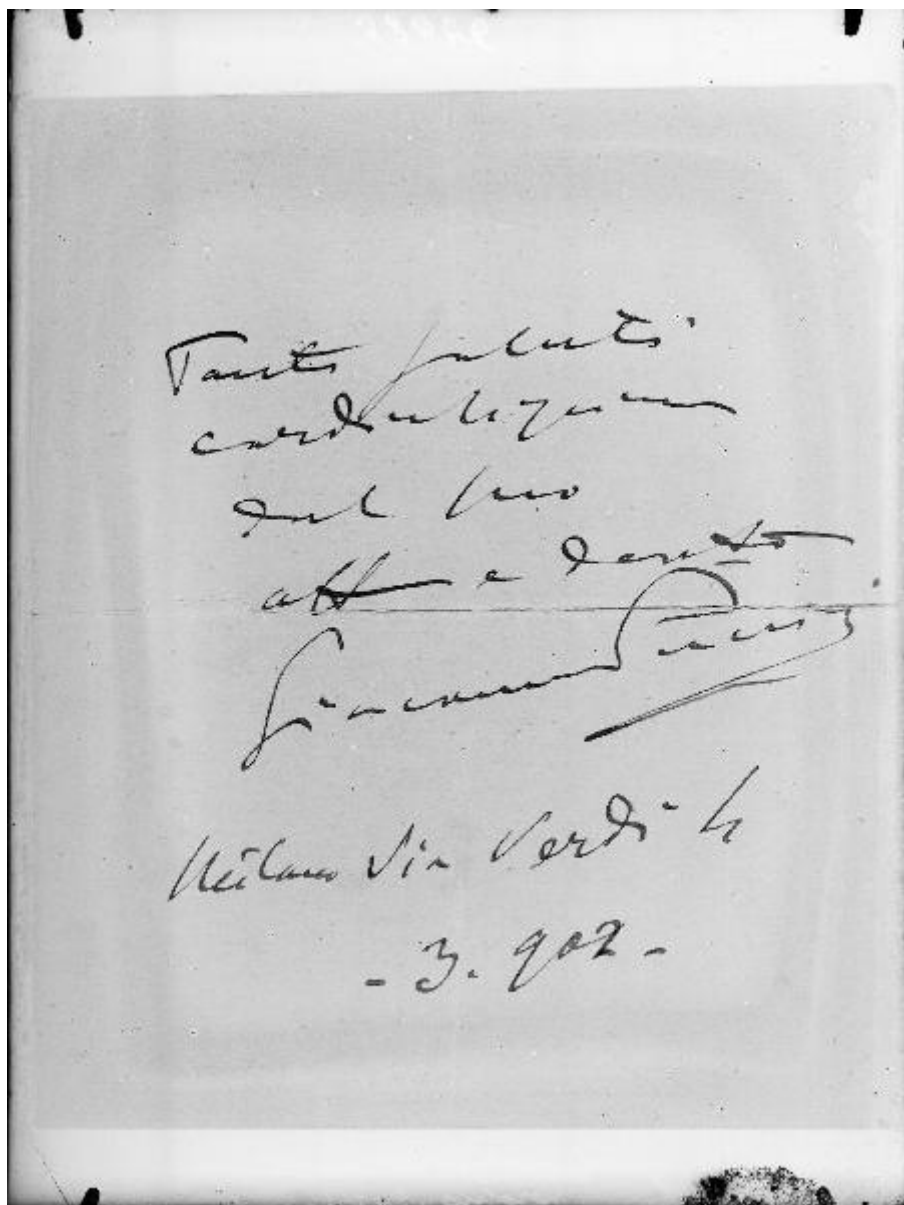 Tanti saluti
cordialissimi
dal suo
aff e devoto
Giacomo Puccini
Milano Via Verdi 4
- 3. 902 -